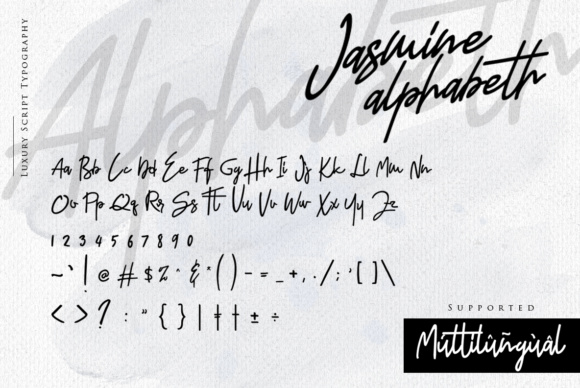 Alphabeth
LUXURY SCRIPT TYPOGRAPHY
Jasmine
alphabeth
Aa Bb Cc Dd Ee Ff Gg Hh Ii Jj Kk Ll Mm Nn
Oo Pp Qq Rr Ss Tt Uu Vv Ww Xx Yy Zz
1 2 3 4 5 6 7 8 9 0
~ ` ! @ # $ % ^ & * ( ) - = _ + , . / ; ' [ ] \
< > ? : " { } | ‡ † ± ÷
SUPPORTED
Múttilûñgùâl